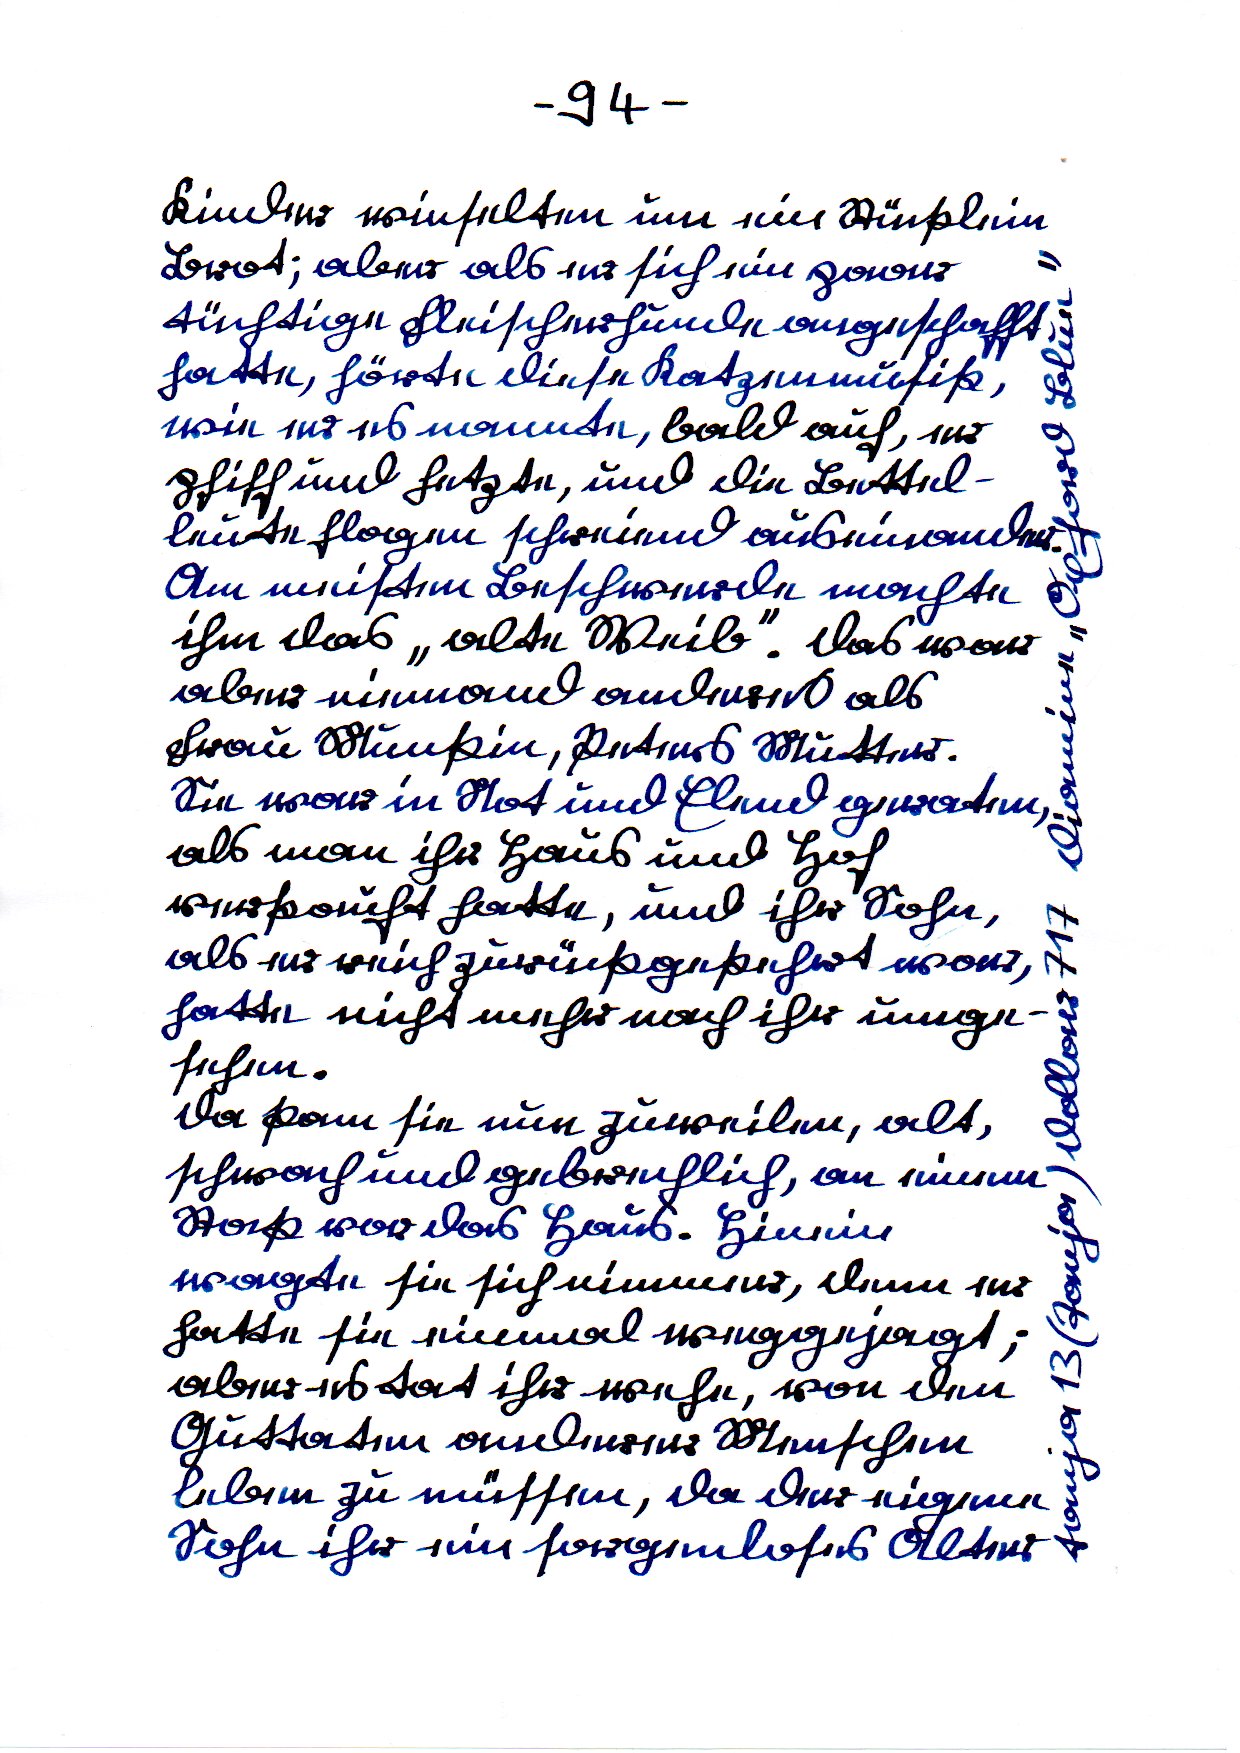 - 94 -
Kinder winselten um ein Stücklein
Brot; aber als er sich ein paar
tüchtige Fleischerhunde angeschafft
hatte, hörte diese Katzenmusik,
wie er es nannte, bald auf, er
pfiff und hetzte, und die Bettel-
leute flogen schreiend auseinander.
Am meisten Beschwerde machte
ihm das „alte Weib". Das war
aber niemand anderes als
Frau Munkin, Peters Mutter.
Sie war in Not und Elend geraten,
als man ihr Haus und Hof
verkauft hatte, und ihr Sohn,
als er reich zurückgekehrt war,
hatte nicht mehr nach ihr umge-
sehen.
Da kam sie nun zuweilen, alt,
schwach und gebrechlich, an einem
Stock vor das Haus. Hinein
wagte sie sich nimmer, denn er
hatte sie einmal weggejagt;
aber es tat ihr wehe, von den
Guttaten anderer Menschen
leben zu müssen, da der eigene
Sohn ihr ein sorgenloses Alter
13 ( ) 717 Diamine „Oxford Blue"